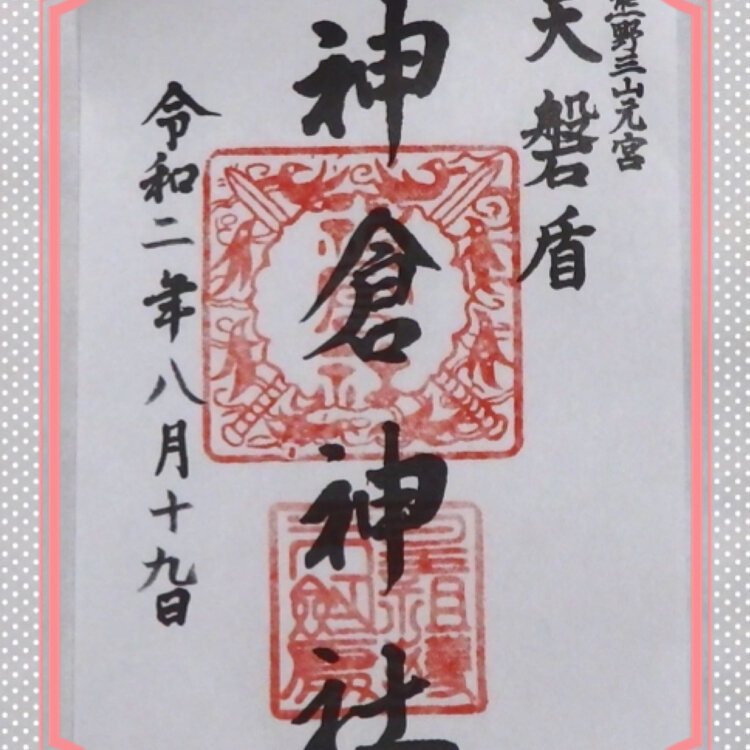 熊野三山元宮
天磐盾
神倉神社
令和二年八月十九日